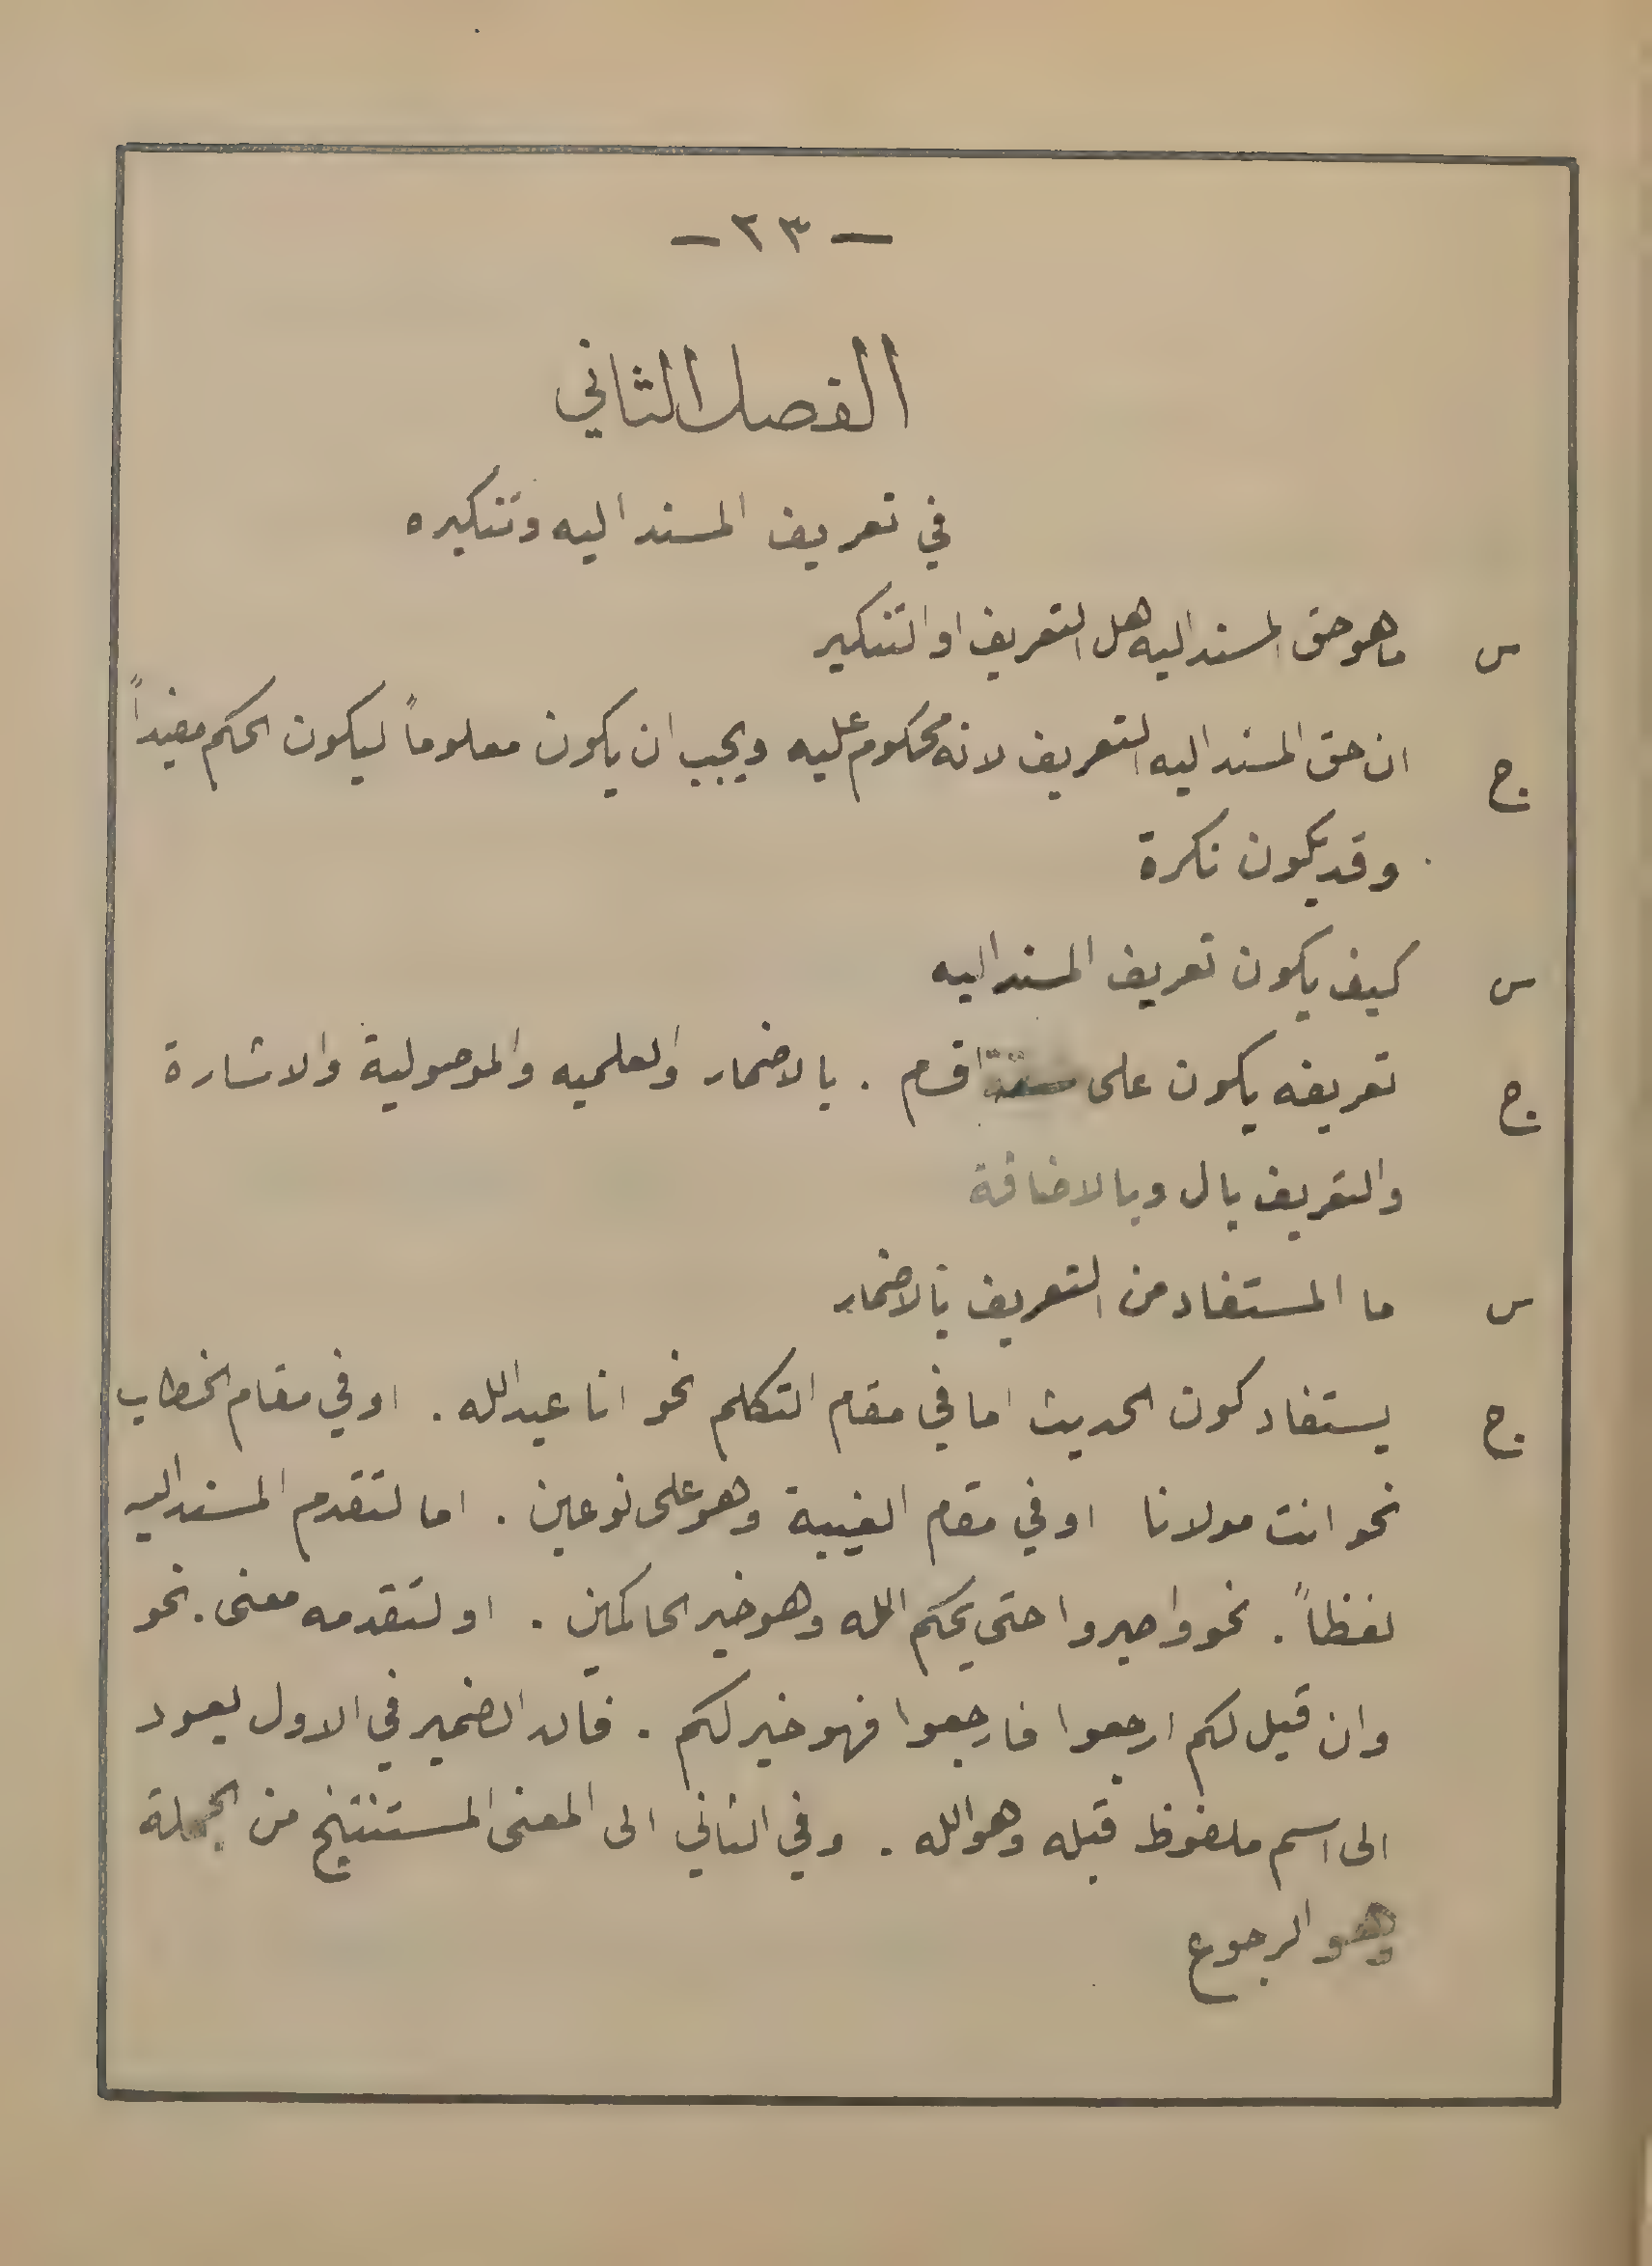 — ٢٣ —
الفصل الثاني
في تعريف المسند اليه وتنكيره
س ما هو حق المسند اليه هل التعريف او التنكير
ج ان حق المسند اليه التعريف لانه محكوم عليه ويجب ان يكون معلوماً ليكون الحكم مفيداً
وقد يكون نكرة
س كيف يكون تعريف المسند اليه
ج تعريفه يكون على ستة اقسام . بالاضمار والعلميه والموصولية والاشارة
والتعريف بال وبالاضافة
س ما المستفاد من التعريف بالاضمار
ج يستفاد كون الحديث اما في مقام التكلم نحو انا عبدالله . او في مقام الخطاب
نحو انت مولانا او في مقام الغيبة وهو على نوعين . اما لتقدم المسند اليه
لفظاً . نحو واصبروا حتى يحكم الله وهو خير الحاكمين . او لتقدمه معنى . نحو
وان قيل لكم ارجعوا فارجعوا فهو خير لكم . فان الضمير في الاول يعود
الى اسم ملفوظ قبله وهو الله . وفي الثاني الى المعنى المستنتج من الجملة
وهو الرجوع